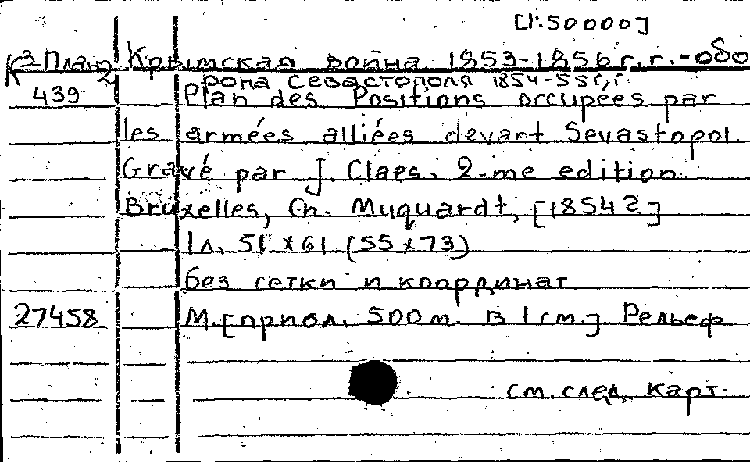 [1:50000]
К 3-План 2 Крымская война 1853-1856 г.г. - обо
рона Севастополя 1854-55 г.г.
439 Plan des Positions occupées par
les armées alliées devant Sevastopol
Gravé par J. Claes. 2-me edition
Bruxelles, Ch. Muquardt, [1854 г]
1 л. 51 x 61 (55 x 73)
без сетки и координат
27458 М. [прибл. 500 м. в 1 см.] Рельеф
см. след. карт.